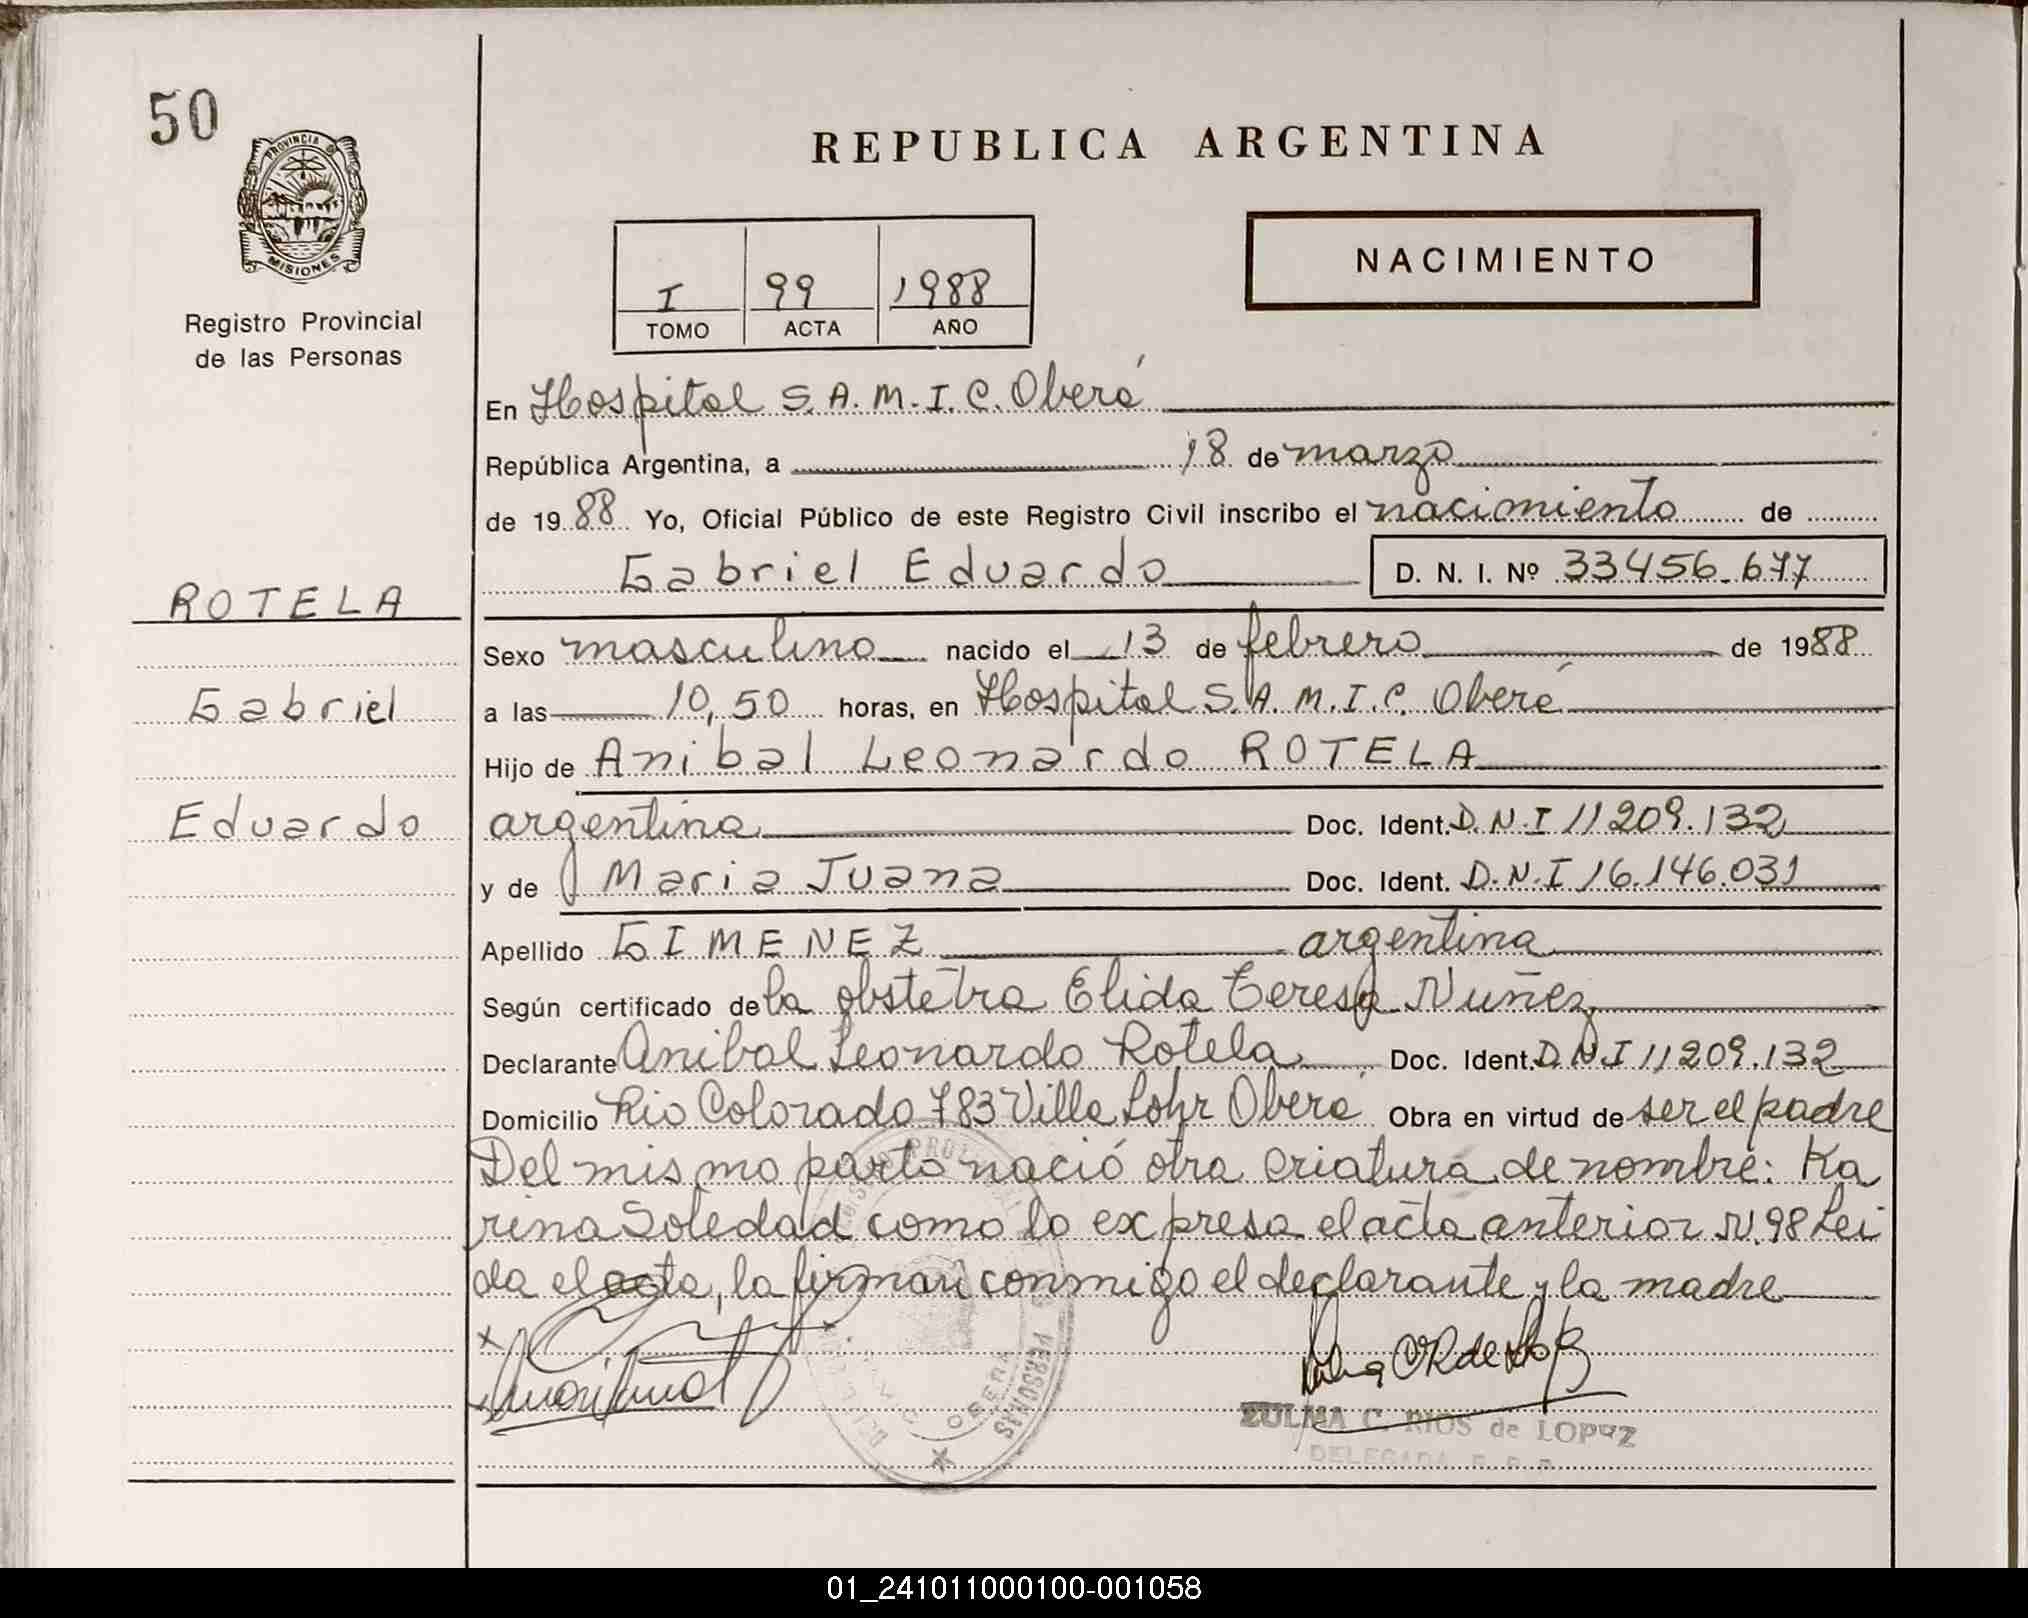 50
PROVINCIA DE
MISIONES
Registro Provincial
de las Personas
REPUBLICA ARGENTINA
I 99 1988
TOMO ACTA AÑO
NACIMIENTO
En Hospital S.A.M.I.C. Oberá
República Argentina, a 18 de marzo
de 1988 Yo, Oficial Público de este Registro Civil inscribo el nacimiento de
Gabriel Eduardo D. N. I. Nº 33456.677
ROTELA
Gabriel
Eduardo
Sexo masculino nacido el 13 de febrero de 1988
a las 10,50 horas, en Hospital S.A.M.I.C. Oberá
Hijo de Anibal Leonardo ROTELA
argentina Doc. Ident. D.N.I 11209.132
y de Maria Juana Doc. Ident. D.N.I 16.146.031
Apellido GIMENEZ argentina
Según certificado de la obstetra Elida Teresa Nuñez
Declarante Anibal Leonardo Rotela Doc. Ident. D.N.I 11209.132
Domicilio Rio Colorado 783 Villa Lohr Oberá Obra en virtud de ser el padre
Del mismo parto nació otra criatura de nombre: Ka
rina Soledad como lo expresa el acta anterior N.98 Lei
da el acta, la firman conmigo el declarante y la madre
ZULMA C. RIOS de LOPEZ
DELEGADA
OBERA
PERSONAS
01_241011000100-001058